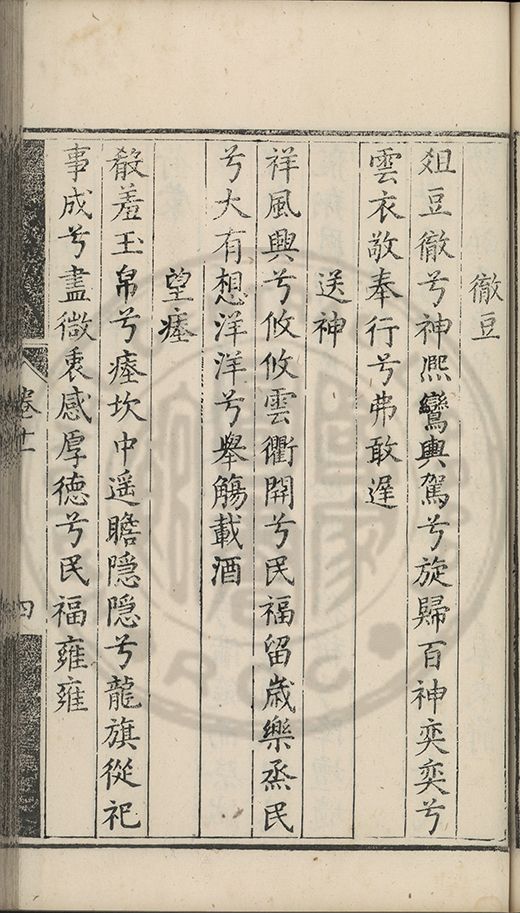 徹豆
俎豆徹兮神熙鸞輿駕兮旋歸百神奕奕兮
雲衣敬奉行兮弗敢遲
送神
祥風興兮攸攸雲衢開兮民福留歲樂烝民
兮大有想洋洋兮舉觴載酒
望瘞
殽羞玉帛兮瘞坎中遥瞻隱隱兮龍旗從祀
事成兮盡微衷感厚德兮民福雍雍
卷十一
四